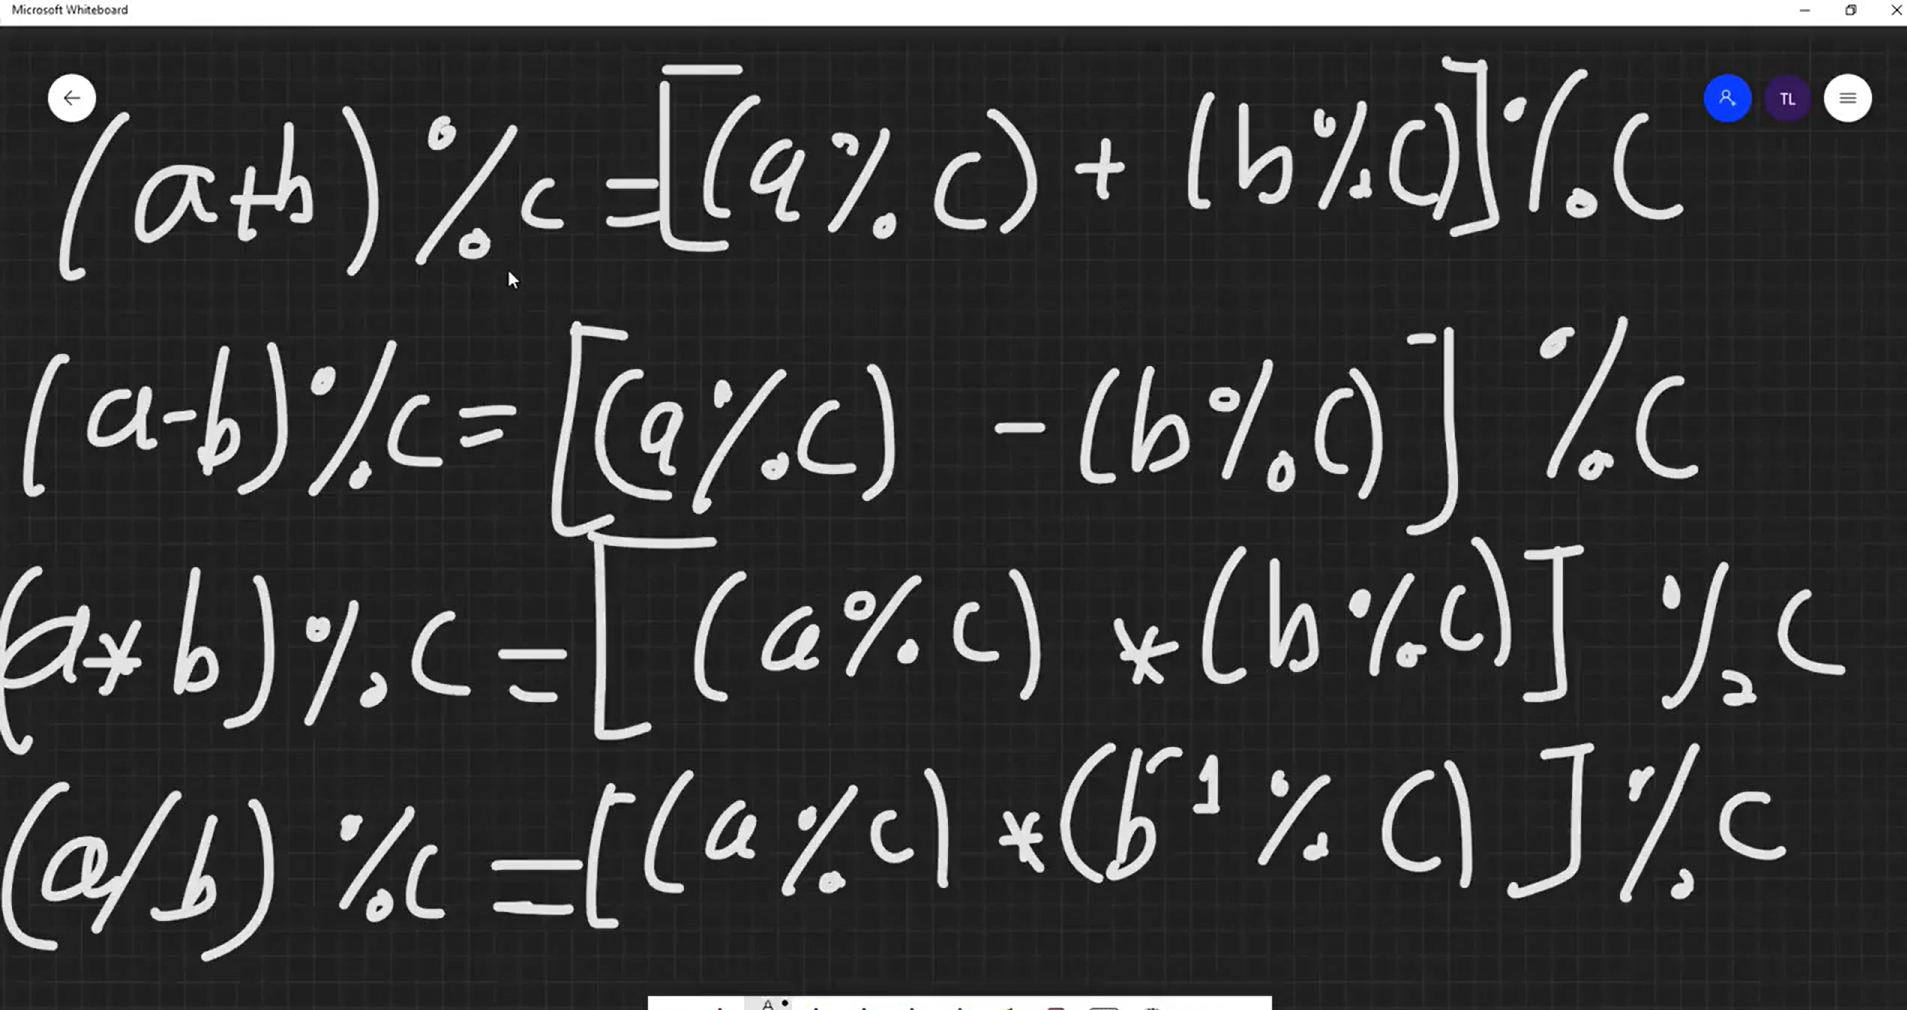 Microsoft Whiteboard
TL
(a+b) % c = [(a % c) + (b % c)] % c
(a-b) % c = [(a % c) - (b % c)] % c
(a * b) % c = [(a % c) * (b % c)] % c
(a/b) % c = [(a % c) * (b⁻¹ % c)] % c